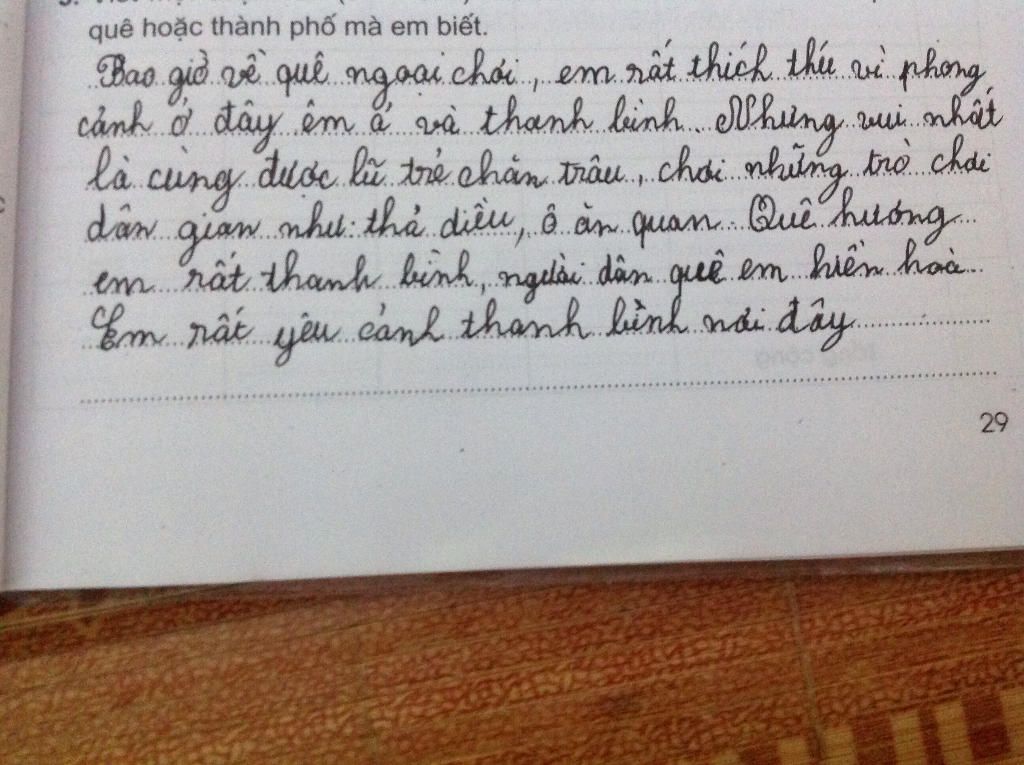 quê hoặc thành phố mà em biết.
Bao giờ về quê ngoại chơi, em rất thích thú vì phong
cảnh ở đây êm ả và thanh bình. Nhưng vui nhất
là cùng được lũ trẻ chăn trâu, chơi những trò chơi
dân gian như: thả diều, ô ăn quan. Quê hương
em rất thanh bình, người dân quê em hiền hoà.
Em rất yêu cảnh thanh bình nơi đây
29